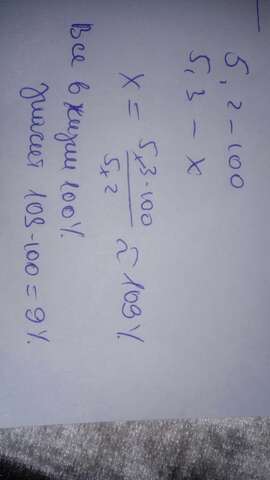 5,2 – 100
5,3 – x
x = 5,3·100 / 5,2 ≈ 109%
Все в жизни 100%.
Значит 109-100 = 9%.